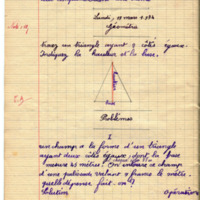 Lundi, 12 mars 1934
Géométrie
Tracez un triangle ayant 2 côtés égaux.
Indiquez la hauteur et la base.
hauteur
base
Problèmes
I
un champ a la forme d'un triangle
ayant deux côtés égaux, dont la base
mesure 45 mètres. On entoure ce champ
d'une palissade valant 9 francs le mètre.
quelle dépense fait-on?
Solution Opérations